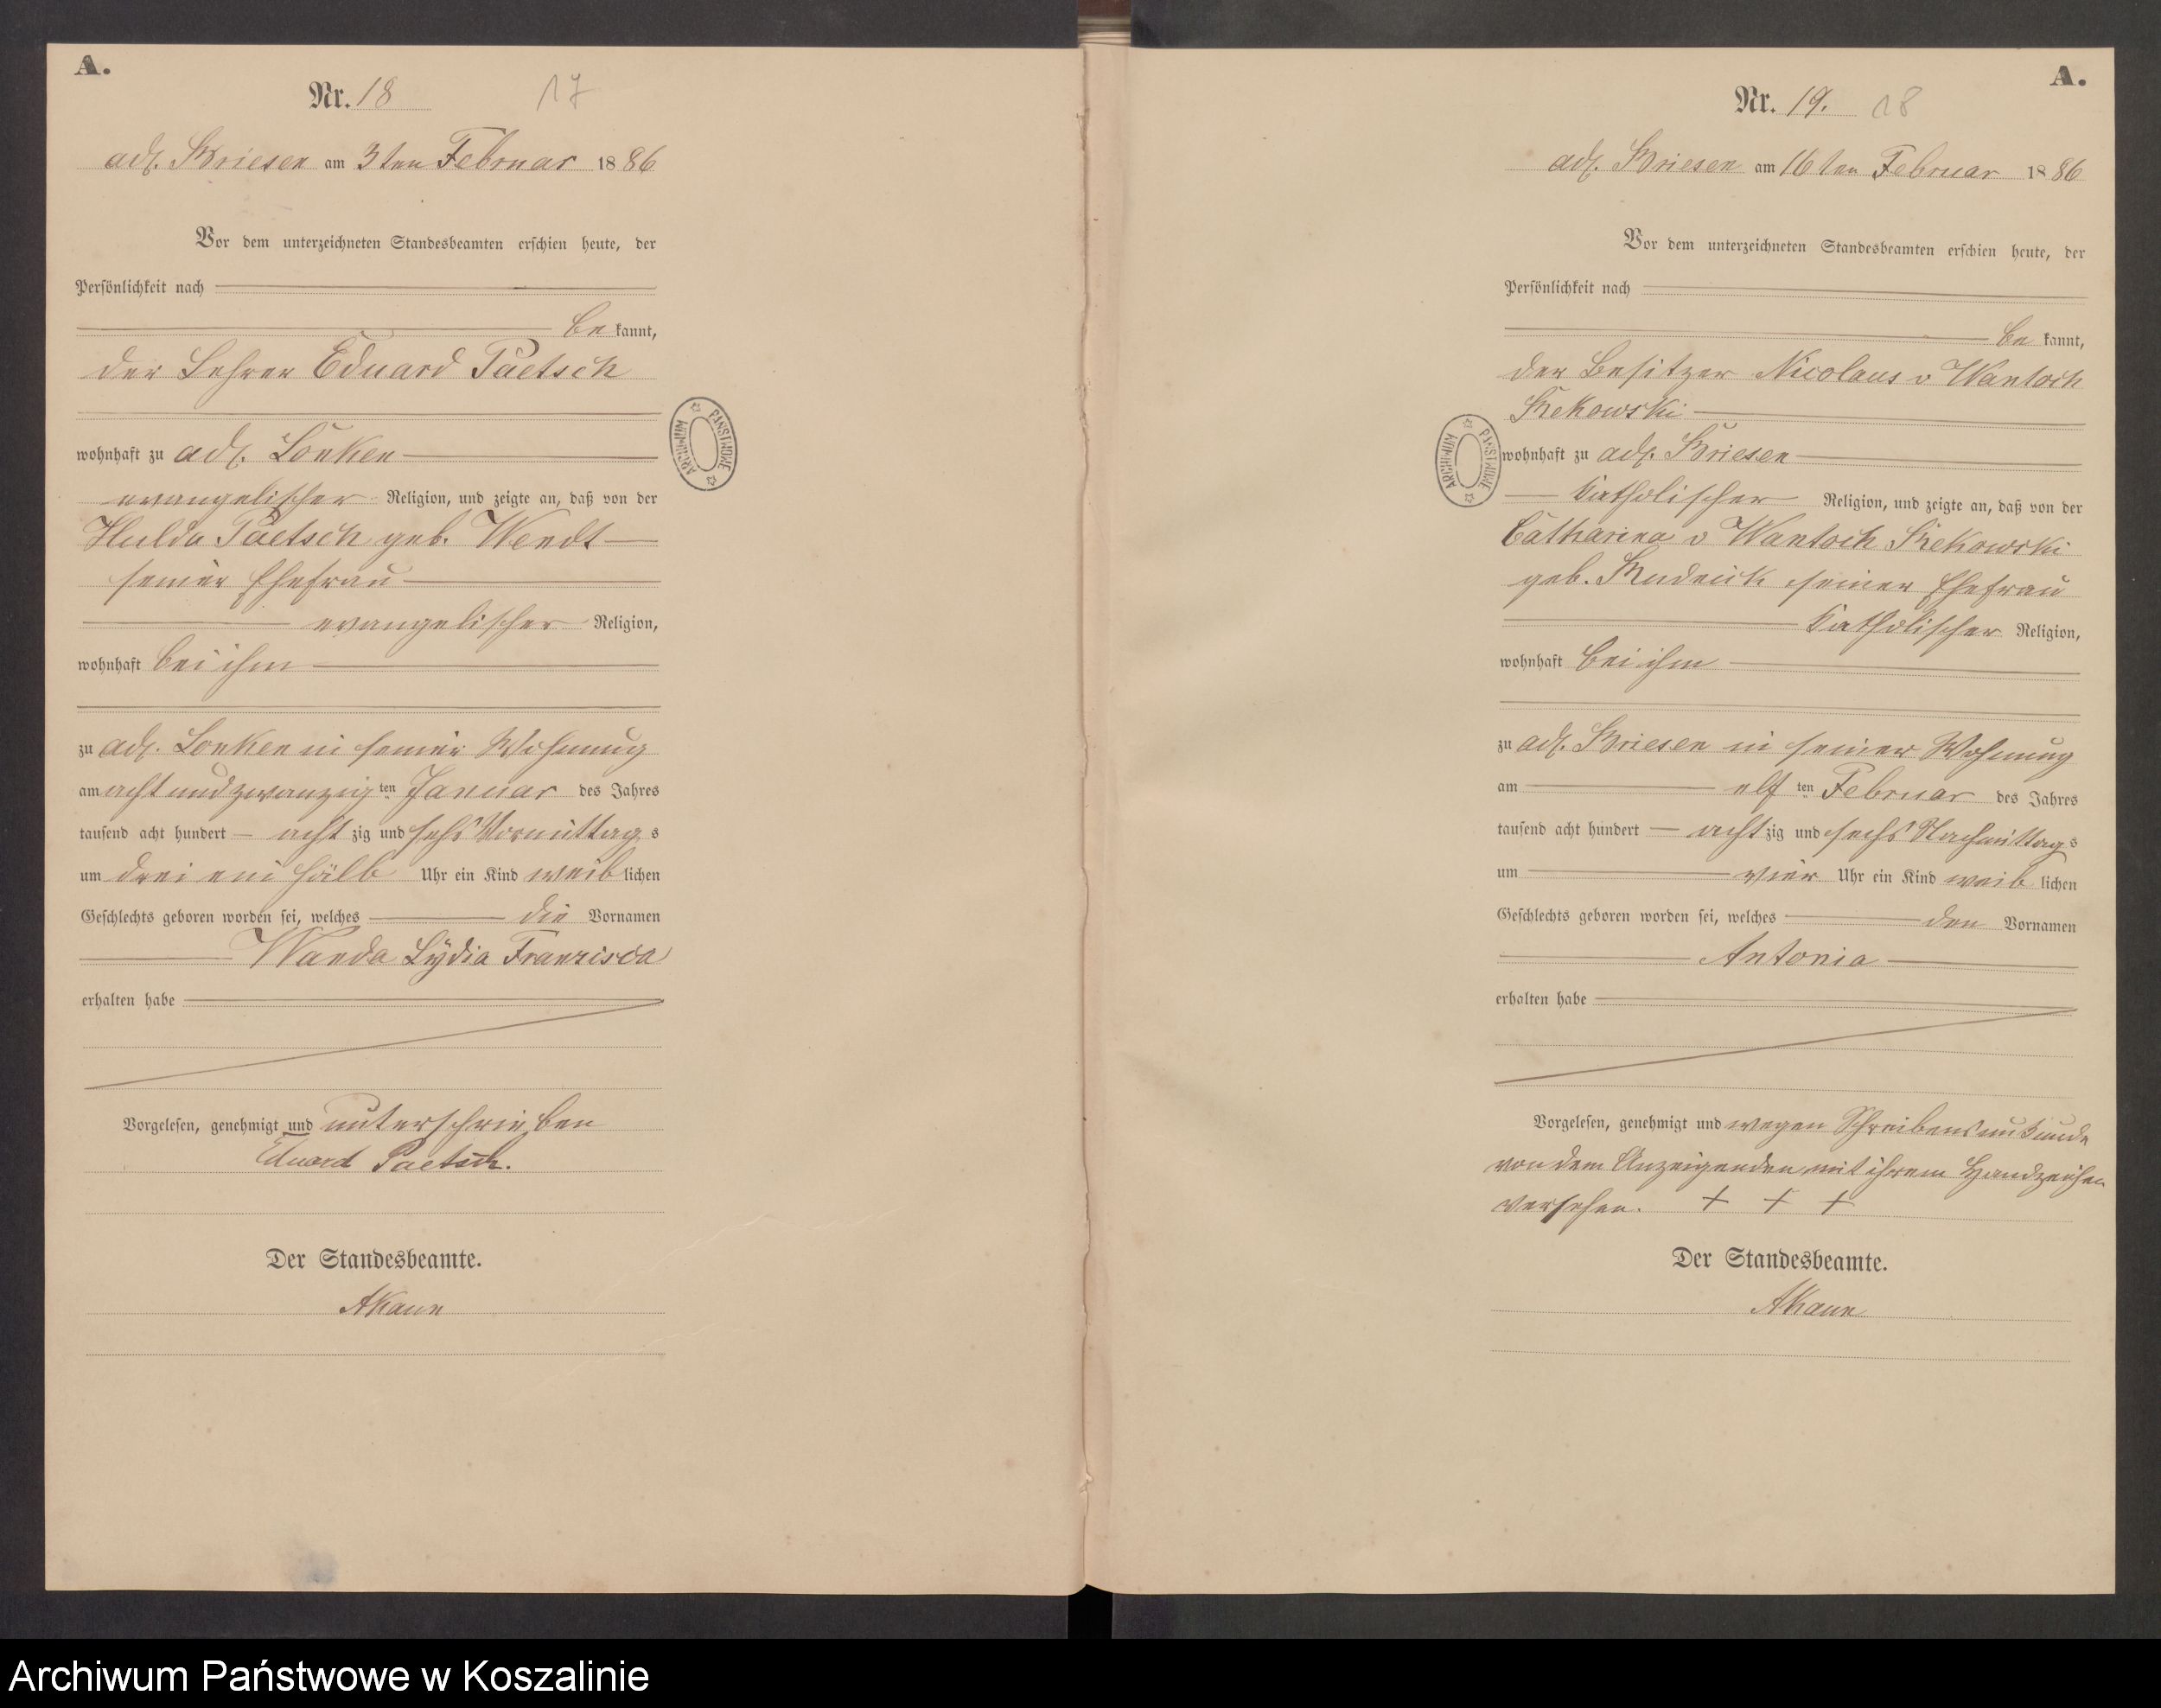 A.
Nr. 18
17
adl. Briesen am 3ten Februar 1886
Vor dem unterzeichneten Standesbeamten erschien heute, der
Persönlichkeit nach
be kannt,
der Lehrer Eduard Paetsch
wohnhaft zu adl. Lonken
evangelischer Religion, und zeigte an, daß von der
Hulda Paetsch geb. Wendt
seiner Ehefrau
evangelischer Religion,
wohnhaft bei ihm
zu adl. Lonken in seiner Wohnung
am achtundzwanzig ten Januar des Jahres
tausend acht hundert acht zig und sechs Vormittag s
um drei ein halb Uhr ein Kind weib lichen
Geschlechts geboren worden sei, welches die Vornamen
Wanda Lydia Franzisca
erhalten habe
Vorgelesen, genehmigt und unterschrieben
Eduard Paetsch.
Der Standesbeamte.
AKaun
ARCHIWUM PAŃSTWOWE
A.
Nr. 19.
18
adl. Briesen am 16ten Februar 1886
Vor dem unterzeichneten Standesbeamten erschien heute, der
Persönlichkeit nach
be kannt,
der Besitzer Nicolaus v Wantoch
Rekowski
wohnhaft zu adl. Briesen
katholischer Religion, und zeigte an, daß von der
Catharina v Wantoch Rekowski
geb. Rudnick seiner Ehefrau
katholischer Religion,
wohnhaft bei ihm
zu adl. Briesen in seiner Wohnung
am elf ten Februar des Jahres
tausend acht hundert acht zig und sechs Nachmittag s
um vier Uhr ein Kind weib lichen
Geschlechts geboren worden sei, welches den Vornamen
Antonia
erhalten habe
Vorgelesen, genehmigt und wegen Schreibensunkunde
von dem Anzeigenden mit ihrem Handzeichen
versehen. + + +
Der Standesbeamte.
AKaun
ARCHIWUM PAŃSTWOWE
Archiwum Państwowe w Koszalinie